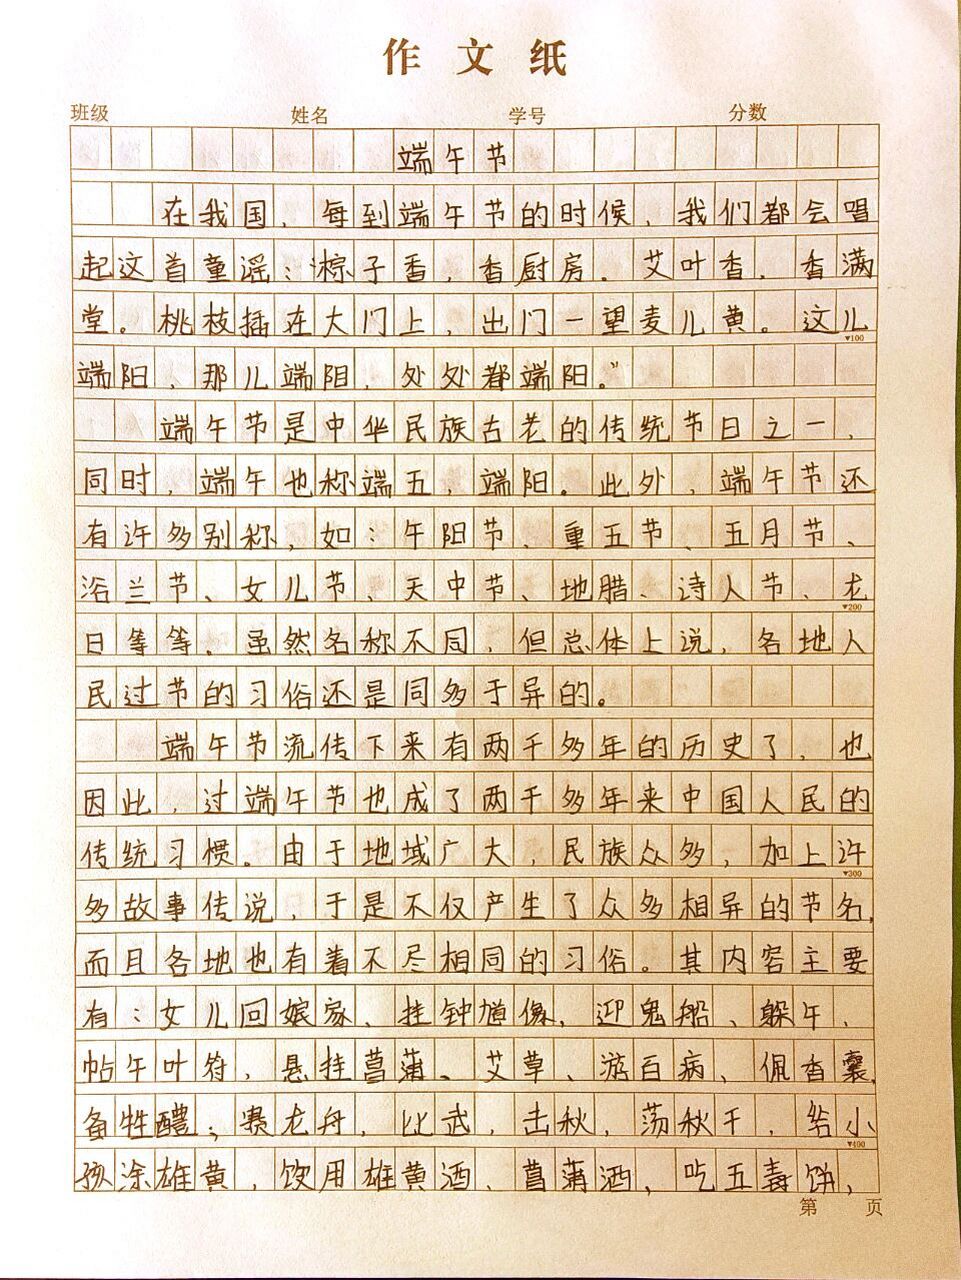 作文纸
班级 姓名 学号 分数
端午节
在我国，每到端午节的时候，我们都会唱
起这首童谣：粽子香，香厨房。艾叶香，香满
堂。桃枝插在大门上，出门一望麦儿黄。这儿
▼100
端阳，那儿端阳，处处都端阳。”
端午节是中华民族古老的传统节日之一，
同时，端午也称端五，端阳。此外，端午节还
有许多别称，如：午阳节、重五节、五月节、
浴兰节、女儿节、天中节、地腊、诗人节、龙
▼200
日等等。虽然名称不同，但总体上说，各地人
民过节的习俗还是同多于异的。
端午节流传下来有两千多年的历史了，也
因此，过端午节也成了两千多年来中国人民的
传统习惯。由于地域广大，民族众多，加上许
▼300
多故事传说，于是不仅产生了众多相异的节名，
而且各地也有着不尽相同的习俗。其内容主要
有：女儿回娘家，挂钟馗像，迎鬼船、躲午，
帖午叶符，悬挂菖蒲、艾草、游百病，佩香囊，
备牲醴；赛龙舟，比武，击秋，荡秋千，给小
▼400
孩涂雄黄，饮用雄黄酒、菖蒲酒，吃五毒饼，
第 页